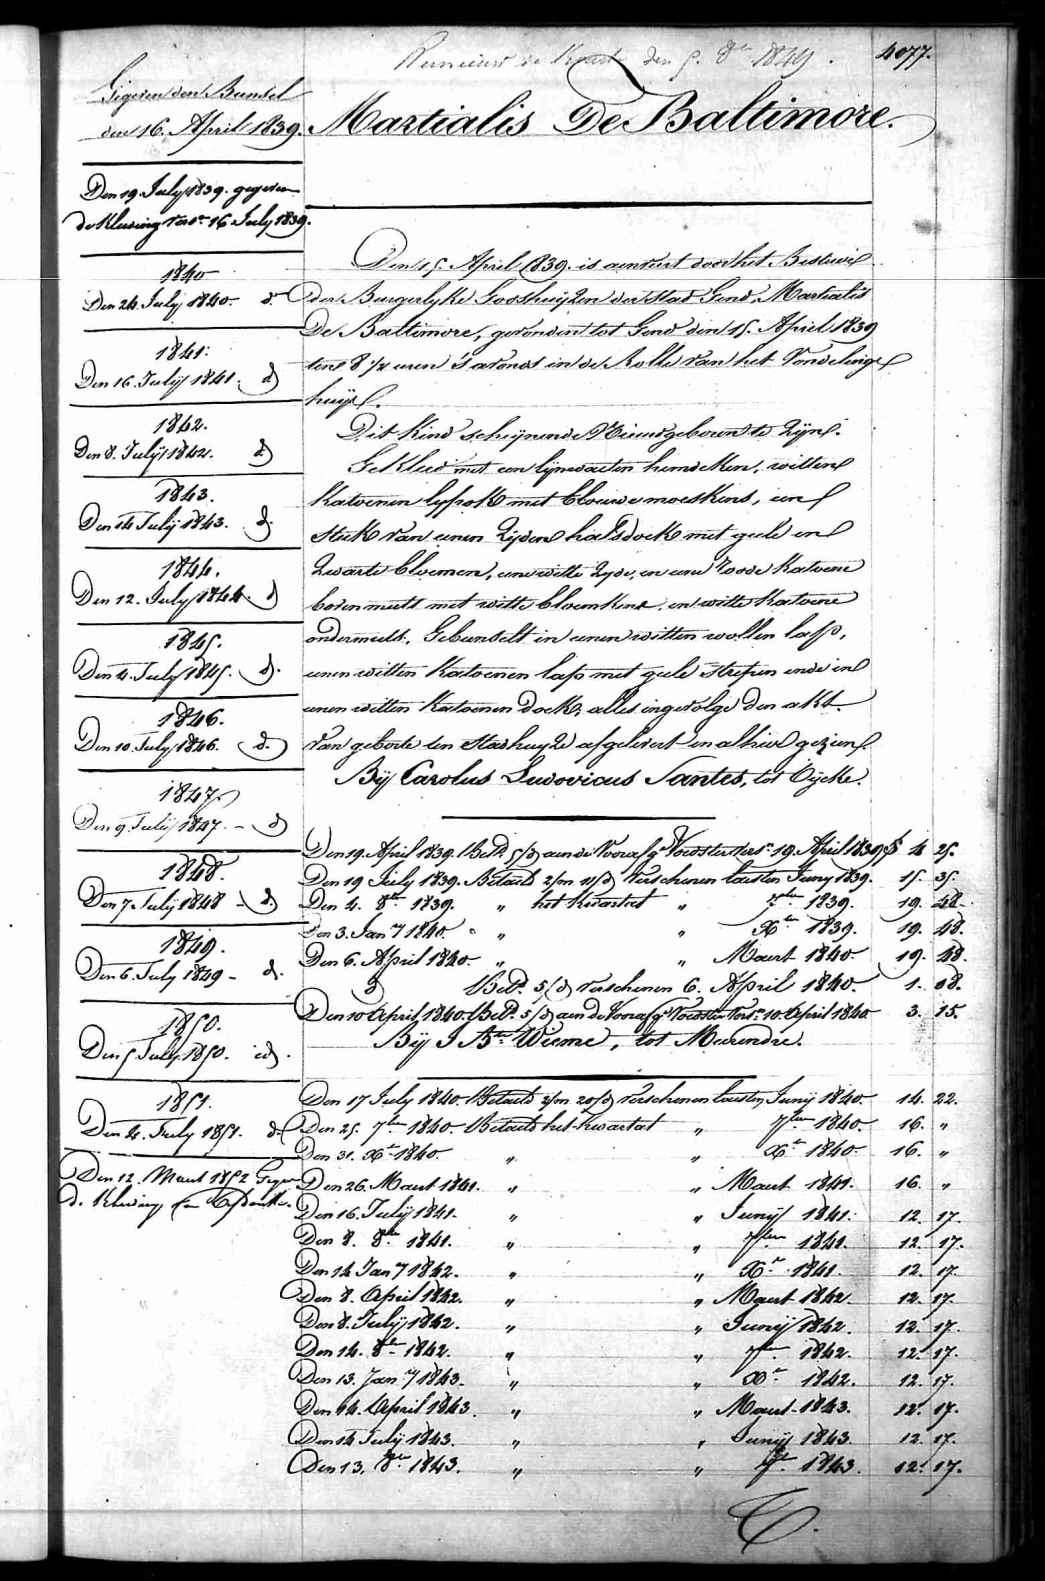 Vernieuwt de Kaart den 5. 8bre 1849.
4077.
Gegeven den Bundel
den 16. April 1839.
Martialis De Baltimore.
Den 19. July 1839. gegeven
de Kleeding vers. 16 July 1839.
1840
Den 24. July 1840. d
1841.
Den 16. July 1841. d
1842.
Den 8. July 1842. d
1843.
Den 14 July 1843. d.
1844.
Den 12. July 1844. d
1845.
Den 4. July 1845. d.
1846.
Den 10. July 1846. d.
1847.
Den 9. July 1847. - d
1848.
Den 7. July 1848 - d.
1849.
Den 6. July 1849 - d.
1850.
Den 5 July 1850. id.
1851.
Den 4. July 1851. d.
Den 12. Maert 1852 Gegev
d. Kleeding
Den 15. April 1839. is aenveert door het Bestuer
der Burgerlyke Godshuyzen der stad Gend, Martialis
De Baltimore, gevonden tot Gend den 15. April 1839
ten 8 1/2 uren 's avonds in de Rolle van het Vondelinge
huys.
Dit Kind schynende Nieuwgeboren te zyn.
Gekleed met een lynwaeten hemdeken, witten
Katoenen lyfrok met blouwe moeskens, een
stuk van eenen zyden halsdoek met geele en
zwarte bloemen, eene witte zyde, en eene roode Katoene
bovenmuts met witte bloemkens, en witte Katoene
ondermuts. Gebunselt in eenen witten wollen lap,
eenen witten Katoenen lap met geele strepen ende in
eenen witten Katoenen doek, alles ingevolge den akt
van geborte ten stadhuyze afgelevert en alhier gezien.
Bij Carolus Ludovicus Santes, tot Eycke.
Den 19. April 1839. Betd. 5/d aen de Vooraf ge Voedster vers. 19. April 1839 $ 4 25.
Den 19 July 1839. Betaeld 2/m 11/d Verschenen laesten Juny 1839. 15. 35.
Den 4. 8bre 1839. " het Kwartael " 7bre 1839. 19. 48.
Den 3. Jany 1840. " " " Xbre 1839. 19. 48.
Den 6. April 1840. " " Maert 1840. 19. 48.
d Betd. 5/d verschenen 6. April 1840. 1. 08.
Den 10 April 1840. Betd. 5/d aen de Vooraf ge Voedster vers. 10. April 1840 3. 15.
Bij J. Bte Wieme, tot Meirendre.
Den 17 July 1840. Betaeld 2/m 20/d verschenen laesten Juny 1840. 14. 22.
Den 25. 7bre 1840. Betaeld het Kwartael " 7bre 1840. 16. "
Den 31. Xbre 1840. " " Xbre 1840. 16. "
Den 26. Maert 1841. " " Maert 1841. 16. "
Den 16. July 1841. " " Juny 1841. 12. 17.
Den 8. 8bre 1841. " " 7bre 1841. 12. 17.
Den 14 Jany 1842. " " Xbre 1841. 12. 17.
Den 8. April 1842. " " Maert 1842. 12. 17.
Den 8. July 1842. " " Juny 1842. 12. 17.
Den 14. 8bre 1842. " " 7bre 1842. 12. 17.
Den 13. Jany 1843. " " Xbre 1842. 12. 17.
Den 14. April 1843. " " Maert 1843. 12. 17.
Den 14 July 1843. " " Juny 1843. 12. 17.
Den 13. 8bre 1843. " " 7bre 1843. 12. 17.